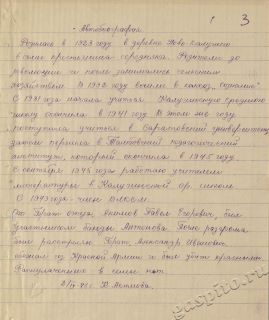 3
Автобиография
Родилась в 1923 году в деревне Ново-Калугино
в семье крестьянина середняка. Родители до
революции и после занимались сельским
хозяйством. В 1932 году вошли в колхоз
С 1931 года начала учиться. Калугинскую среднюю
школу окончила в 1941 году. В этом же году
поступила учиться в Саратовский университет,
затем перешла в Тамбовский педагогический
институт, который окончила в 1945 году.
С сентября 1945 года работаю учителем
литературы в Калугинской ср. школе
С 1943 года член ВЛКСМ.
Брат отца, Акимов Павел Егорович, был
участником банды Антонова. После разгрома
был расстрелян. Брат Александр Иванович
бежал из Красной Армии и был убит красными.
Раскулаченных в семье нет.
gaspito.ru